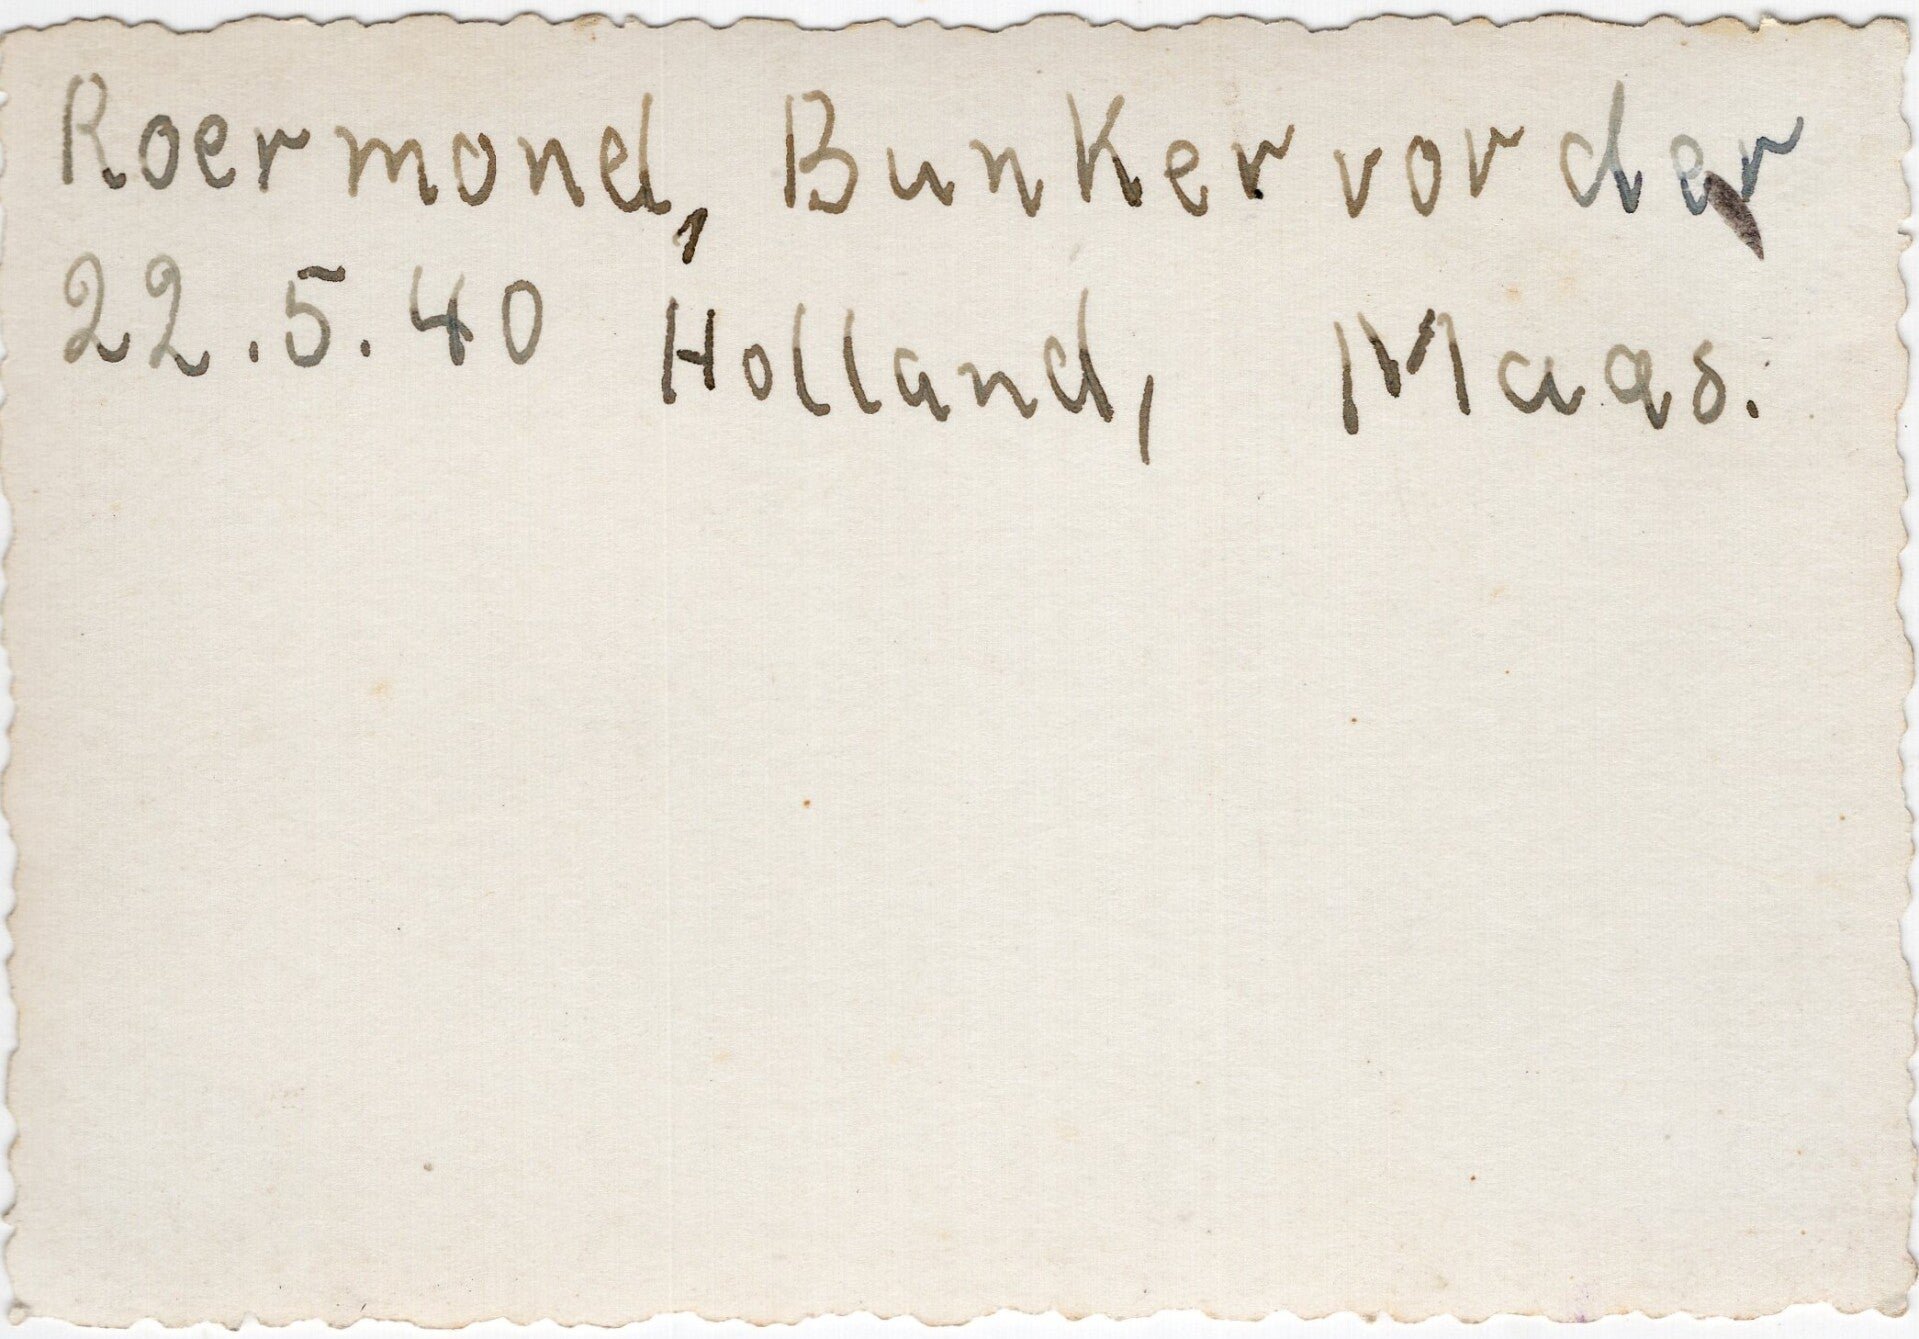 Roermond, Bunker vor der
22.5.40 Holland, Maas.